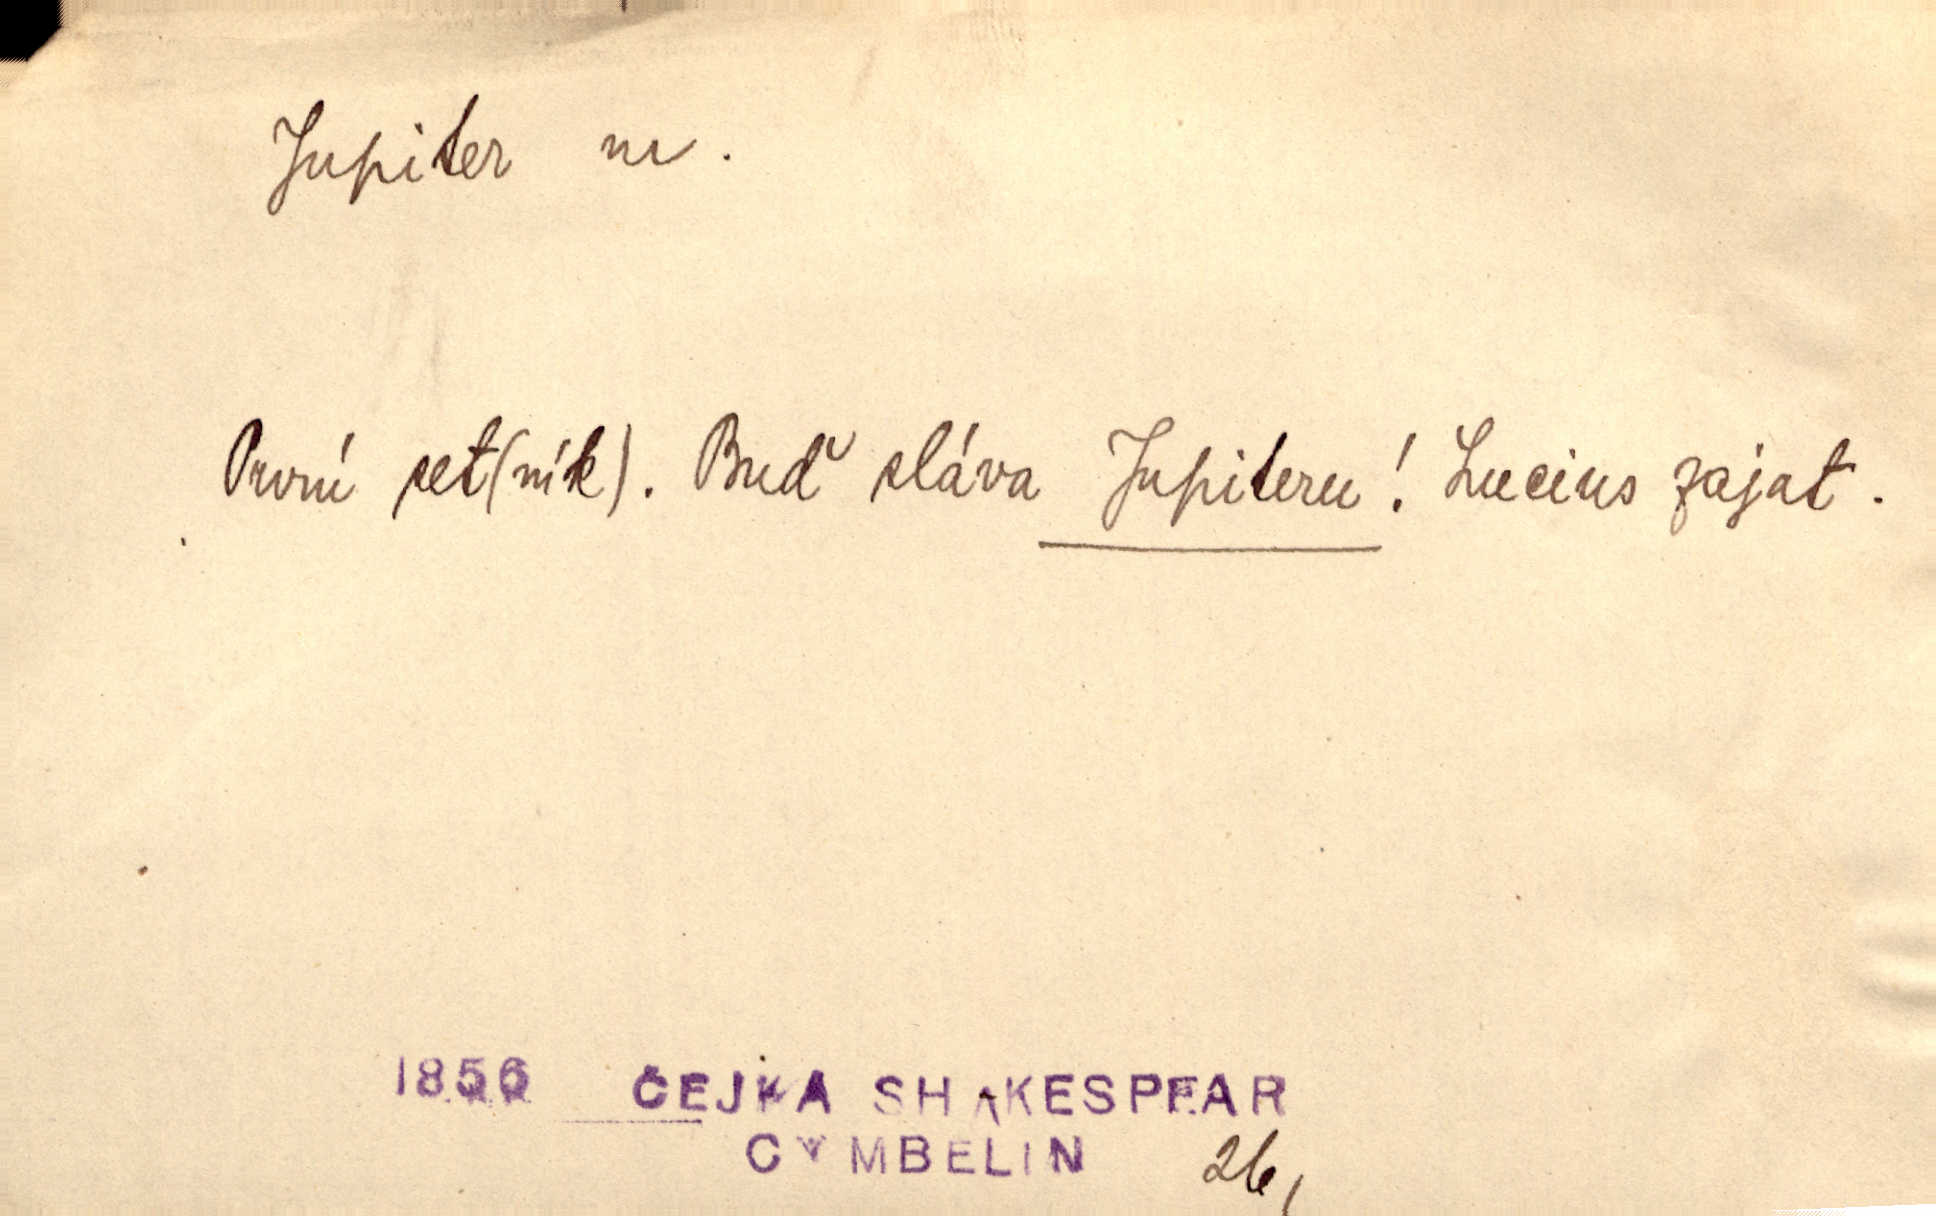 Jupiter m.
První set(ník). Buď sláva Jupiteru! Lucius zajat.
1856 ČEJKA SHAKESPEAR
CYMBELIN 26,